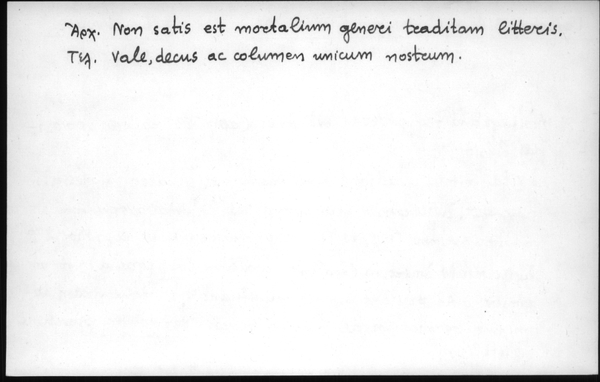 Ἀρχ. Non satis est mortalium generi traditam litteris.
Τελ. Vale, decus ac columen unicum nostrum.